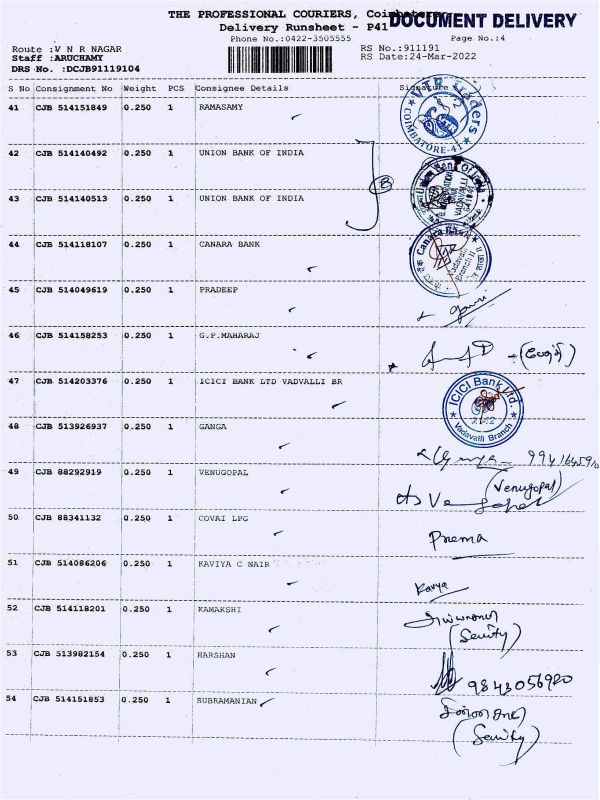 THE PROFESSIONAL COURIERS, Coimbatore
DOCUMENT DELIVERY
Delivery Runsheet - P41
Phone No.:0422-3505555 Page No.:4
Route :V N R NAGAR RS No.:911191
Staff :ARUCHAMY RS Date:24-Mar-2022
DRS No. :DCJB91119104
S No Consignment No Weight PCS Consignee Details Signature
41 CJB 514151849 0.250 1 RAMASAMY
COIMBATORE-41
42 CJB 514140492 0.250 1 UNION BANK OF INDIA
43 CJB 514140513 0.250 1 UNION BANK OF INDIA
44 CJB 514118107 0.250 1 CANARA BANK
Canara Bank
Vadavalli
Branch II
45 CJB 514049619 0.250 1 PRADEEP
46 CJB 514158253 0.250 1 G.P.MAHARAJ
47 CJB 514203376 0.250 1 ICICI BANK LTD VADVALLI BR
ICICI Bank Ltd.
Vadavalli Branch
48 CJB 513926937 0.250 1 GANGA
49 CJB 88292919 0.250 1 VENUGOPAL
(Venugopal)
50 CJB 88341132 0.250 1 COVAI LPG
Prema
51 CJB 514086206 0.250 1 KAVIYA C NAIR
Kavya
52 CJB 514118201 0.250 1 KAMAKSHI
53 CJB 513982154 0.250 1 HARSHAN
9843056920
54 CJB 514151853 0.250 1 SUBRAMANIAN